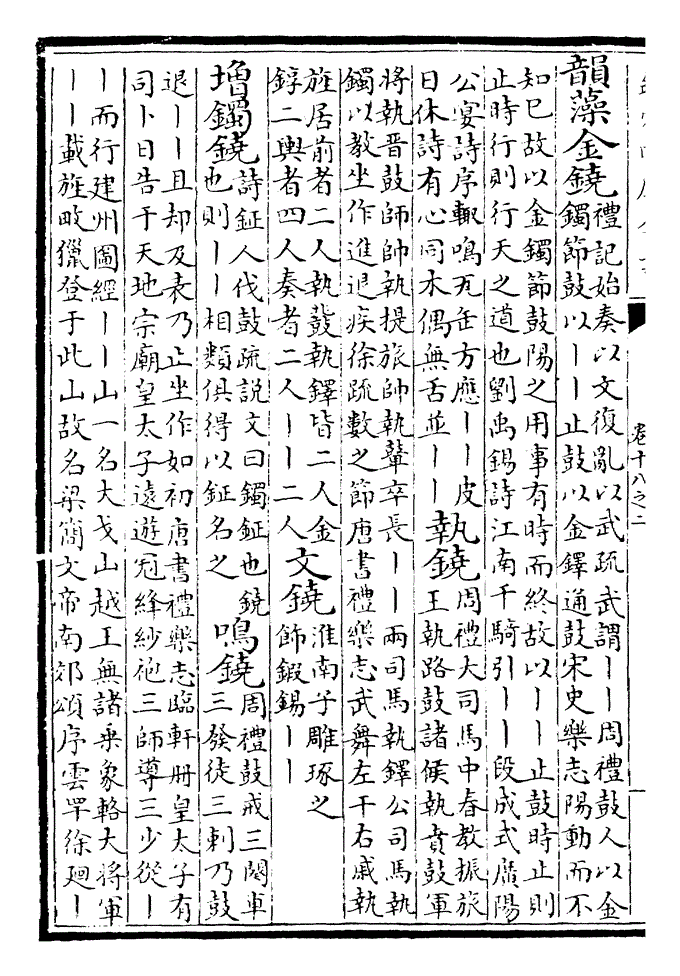 卷十八之二
韻藻金鐃禮記始奏以文復亂以武疏武謂丨丨周禮鼓人以金
鐲節鼓以丨丨止鼓以金鐸通鼓宋史樂志陽動而不
知已故以金鐲節鼓陽之用事有時而終故以丨丨止鼓時止則
止時行則行天之道也劉禹錫詩江南千騎引丨丨段成式廣陽
公宴詩序輒鳴瓦缶方應丨丨皮
日休詩有心同木偶無舌並丨丨
執鐃周禮大司馬中春教振旅
王執路鼓諸侯執賁鼓軍
將執晋鼓師帥執提旅帥執鼙卒長丨丨兩司馬執鐸公司馬執
鐲以教坐作進退疾徐疏數之節唐書禮樂志武舞左干右戚執
旌居前者二人執鼗執鐸皆二人金
錞二輿者四人奏者二人丨丨二人
文鐃淮南子雕琢之
飾鍜錫丨丨
增鐲鐃詩鉦人伐鼓疏説文曰鐲鉦也鐃
也則丨丨相類俱得以鉦名之
鳴鐃周禮鼓戒三闋車
三發徒三刺乃鼓
退丨丨且却及表乃止坐作如初唐書禮樂志臨軒册皇太子有
司卜日告于天地宗廟皇太子遠遊冠絳紗袍三師導三少從丨
丨而行建州圖經丨丨山一名大戈山越王無諸乘象輅大將軍
丨丨載旌畋獵登于此山故名梁簡文帝南郊頌序雲罕徐廻丨